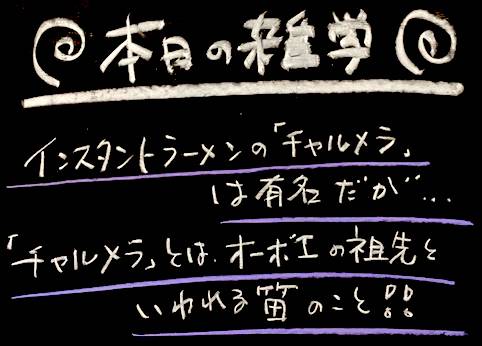 本日の雑学
インスタントラーメンの「チャルメラ」
は有名だが…
「チャルメラ」とは、オーボエの祖先と
いわれる笛のこと!!